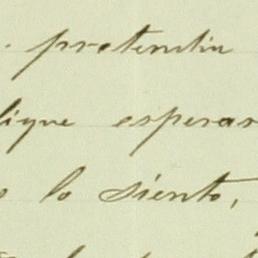 pretendia
lique esperar
lo siento,